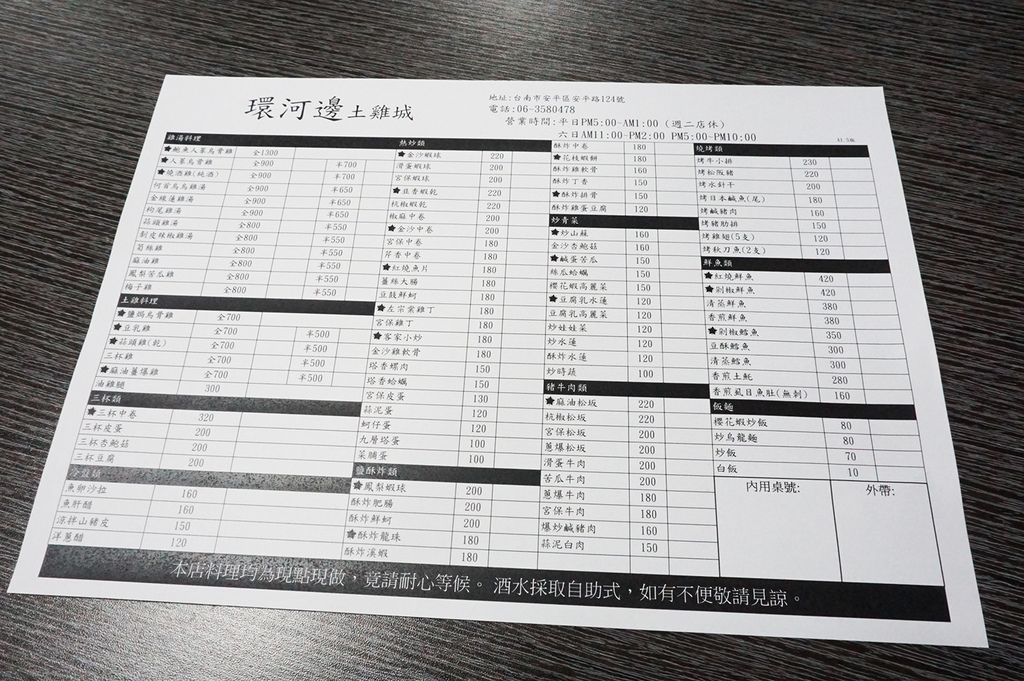 環河邊土雞城
地址:台南市安平區安平路124號
電話:06-3580478
營業時間:平日PM5:00-AM1:00 (週二店休)
六日AM11:00-PM2:00 PM5:00-PM10:00
雞湯料理
★鮑魚人蔘烏骨雞 全1300
★人蔘烏骨雞 全900 半700
★燒酒雞(純酒) 全900
何首烏烏雞湯 全900 半650
金線蓮雞湯 全900 半650
枸尾雞湯 全900 半650
蒜頭雞湯 全800 半550
剝皮辣椒雞湯 全800 半550
筍絲雞 全800 半550
麻油雞 全800 半550
鳳梨苦瓜雞 全800 半550
梅子雞 全800 半550
土雞料理
★鹽焗烏骨雞 全700
★豆乳雞 全700 半500
★蒜頭雞(乾) 全700 半500
三杯雞 全700 半500
★麻油薑爆雞 全700 半500
油雞腿 300
三杯類
★三杯中卷 320
三杯皮蛋 200
三杯杏鮑菇 200
三杯豆腐 200
冷盤類
魚卵沙拉 160
魚肝醋 160
涼拌山豬皮 150
洋蔥醋 120
熱炒類
★金沙蝦球 220
滑蛋蝦球 200
宮保蝦球 200
★豆香蝦乾 220
杭椒蝦乾 220
椒麻中卷 200
★金沙中卷 200
宮保中卷 180
芹香中卷 180
★紅燒魚片 180
薑絲大腸 180
豆鼓鮮蚵 180
★左宗棠雞丁 180
宮保雞丁 180
★客家小炒 180
金沙雞軟骨 180
塔香螺肉 150
塔香蛤蠣 150
宮保皮蛋 130
蒜泥蛋 120
蚵仔蛋 120
九層塔蛋 100
菜脯蛋 100
鹽酥炸類
★鳳梨蝦球 200
酥炸肥腸 200
酥炸鮮蚵 200
★酥炸龍珠 180
酥炸溪蝦 180
酥炸中卷 180
★花枝蝦餅 180
酥炸雞軟骨 160
酥炸丁香 150
★酥炸排骨 150
酥炸雞蛋豆腐 120
炒青菜
★炒山蘇 160
金沙杏鮑菇 160
★鹹蛋苦瓜 150
絲瓜蛤蠣 150
櫻花蝦高麗菜 150
★豆腐乳水蓮 120
豆腐乳高麗菜 120
炒娃娃菜 120
炒水蓮 120
酥炸水蓮 120
炒時蔬 100
豬牛肉類
★麻油松坂 220
杭椒松坂 220
宮保松坂 200
蔥爆松坂 200
滑蛋牛肉 200
苦瓜牛肉 200
蔥爆牛肉 180
宮保牛肉 180
爆炒鹹豬肉 160
蒜泥白肉 150
燒烤類
烤牛小排 230
烤松阪豬 220
烤水針干 200
烤日本鹹魚(尾) 180
烤鹹豬肉 160
烤豬肋排 150
烤雞翅(5支) 120
烤秋刀魚(2支) 120
鮮魚類
★紅燒鮮魚 420
★剁椒鮮魚 420
清蒸鮮魚 380
香煎鮮魚 380
★剁椒鱈魚 350
豆酥鱈魚 300
清蒸鱈魚 300
香煎土魠 280
香煎虱目魚肚(無刺) 160
飯麵
櫻花蝦炒飯 80
炒烏龍麵 80
炒飯 70
白飯 10
內用桌號: 外帶:
本店料理均為現點現做，竟請耐心等候。 酒水採取自助式，如有不便敬請見諒。